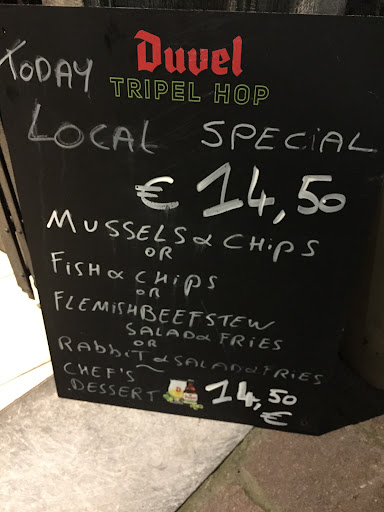 Duvel
TODAY
TRIPEL HOP
LOCAL SPECIAL
€ 14,50
MUSSELS & CHIPS
OR
FISH & CHIPS
OR
FLEMISH BEEFSTEW
SALAD & FRIES
OR
RABBIT & SALAD & FRIES
CHEF'S
DESSERT 14,50
€